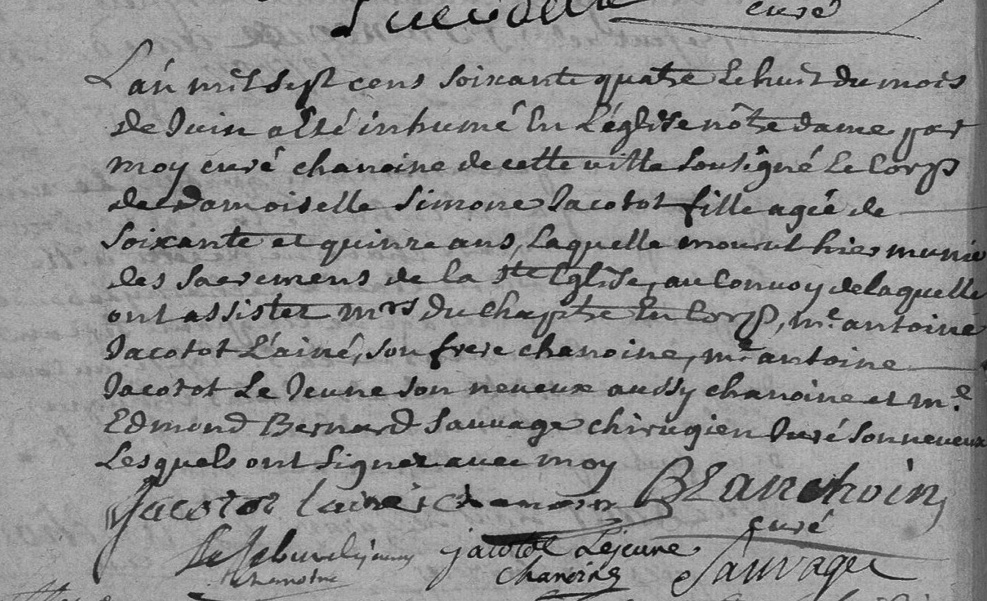 curé
L'an mil sept cens soixante quatre le huit du mois
de Juin a été inhumé En L'église nôtre dame par
moy curé chanoine de cette ville sousigné Le Corps
de Damoiselle Simone Jacotot fille agée de
soixante et quinze ans, Laquelle mourut hier munie
des sacremens de la ste Eglise, au Convoy de laquelle
ont assister mrs du chaptre En Corps, mr antoine
Jacotot L'ainé, son frere chanoine, mr antoine
Jacotot Le Jeune son neveux aussy chanoine et mr
Edmond Bernard Sauvage chirugien Juré son neveux
Lesquels ont signer avec moy
Jacotot Lainé chanoine Blanchoin
curé
jacotot Lejeune Sauvage
chanoine chanoine